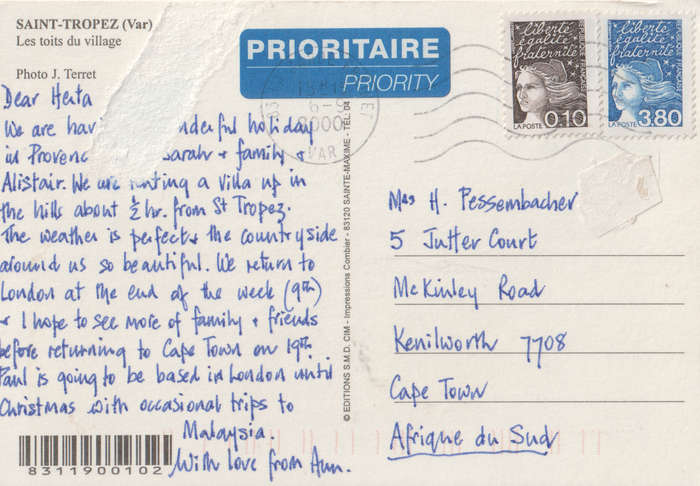 SAINT-TROPEZ (Var)
Les toits du village
Photo J. Terret
PRIORITAIRE
PRIORITY
liberté
égalité
fraternité
RÉPUBLIQUE FRANÇAISE
LA POSTE
0,10
liberté
égalité
fraternité
RÉPUBLIQUE FRANÇAISE
LA POSTE
3,80
2000
VAR
Dear Herta
We are hav nderful holiday
in Proven Sarah + family +
Alistair. We are renting a villa up in
the hills about ½ hr. from St Tropez.
The weather is perfect + the countryside
around us so beautiful. We return to
London at the end of the week (9th)
+ I hope to see more of family + friends
before returning to Cape Town on 19th.
Paul is going to be based in London until
Christmas with occasional trips to
Malaysia.
With love from Ann.
8311900102
© EDITIONS S.M.D. CIM - Impressions Combier - 83120 SAINTE-MAXIME - TÉL. 04
Mrs H. Pessembacher
5 Jutter Court
McKinley Road
Kenilworth 7708
Cape Town
Afrique du Sud